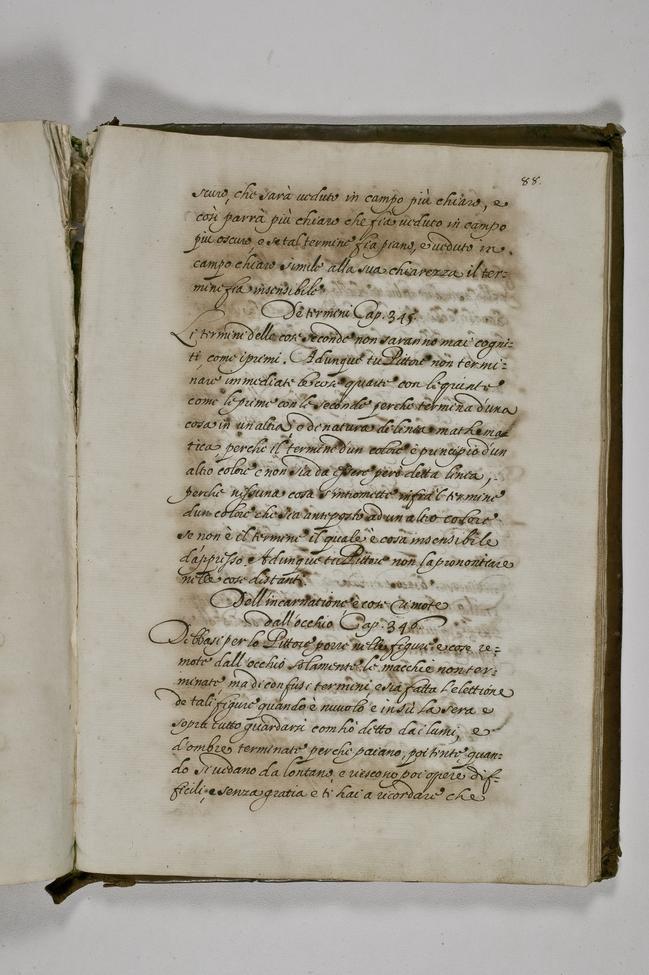 88.
scuro, che sarà ueduto in campo più chiaro, e
così parrà più chiaro che fia ueduto in campo
più oscuro, e se tal termine fia piano, e ueduto in
campo chiaro simile alla sua chiarezza il ter:
mine fia insensibile
De termini Cap. 345
Li termini delle cose seconde non saranno mai cogni:
ti come i primi. Adunque tu Pittore non termi:
nare immediate le cose quarte con le quinte
come le prime con le seconde perche termina d'una
cosa in un altra e de natura de linea mathema
tica perche il termine d'un colore è principio d'un
altro colore e non sia da essere però detta linea,
perche nissuna cosa s'intromette infra'l termine
d'un colore che sia anteposto ad un altro colore
se non è il termine il quale è cosa insensibile
d'appresso. Adunque tu Pittore non la prononciare
nelle cose distanti
Dell'incarnatione e cose rimote
dall'occhio Cap. 346
Debbasi per lo Pittore porre nelle figure e cose re:
mote dall'occhio solamente le macchie non ter:
minate ma di confusi termini e sia fatta l'elettione
de tali figure quando è nuuolo e in sù la sera e
sopra tutto guardarsi com ho detto dai lumi, e
d'ombre terminate perche paiano poi tente quan:
do si uedano da lontano e riescono poi opere dif:
ficili, e senza gratia e ti hai a ricordare che